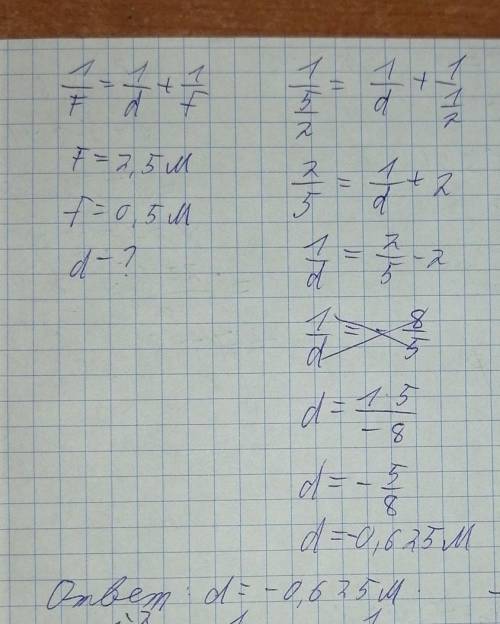 1/F = 1/d + 1/f
F = 2,5 м
f = 0,5 м
d - ?
1/(5/2) = 1/d + 1/(1/2)
2/5 = 1/d + 2
1/d = 2/5 - 2
1/d = - 8/5
d = 1·5/-8
d = - 5/8
d = -0,625 м
Ответ: d = -0,625 м.